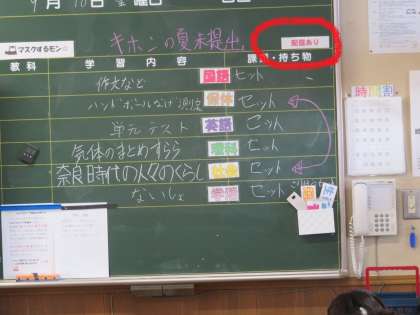 9月10日 金曜日
マスクするモン☆ キホンの夏 未提出。 配信あり
教科 学習内容 課題・持ち物
作文など 国語 セット
ハンドボールなげ 測定 保体 セット
単元テスト 英語 セット
気体のまとめすらら 理科 セット
奈良時代の人々のくらし 社会 セット
ないしょ 学活 セット
時間割